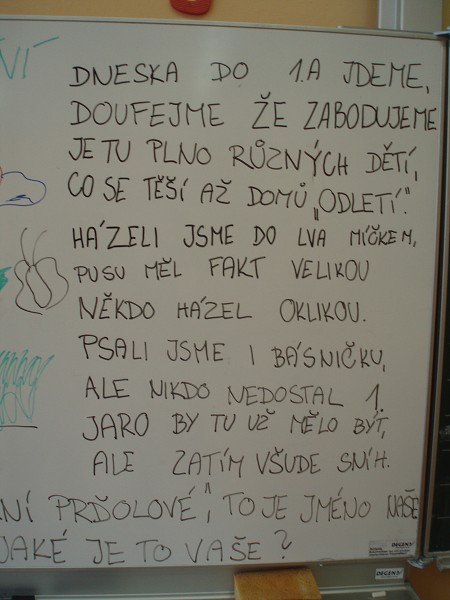 NÍ
DNESKA DO 1.A JDEME,
DOUFEJME ŽE ZABODUJEME
JE TU PLNO RŮZNÝCH DĚTÍ,
CO SE TĚŠÍ AŽ DOMŮ „ODLETÍ".
HÁZELI JSME DO LVA MÍČKEM,
PUSU MĚL FAKT VELIKOU
NĚKDO HÁZEL OKLIKOU.
PSALI JSME I BÁSNIČKU,
ALE NIKDO NEDOSTAL 1.
JARO BY TU UŽ MĚLO BÝT,
ALE ZATÍM VŠUDE SNÍH.
NÍ PRĎOLOVÉ", TO JE JMÉNO NAŠE
JAKÉ JE TO VAŠE?
DEGEN